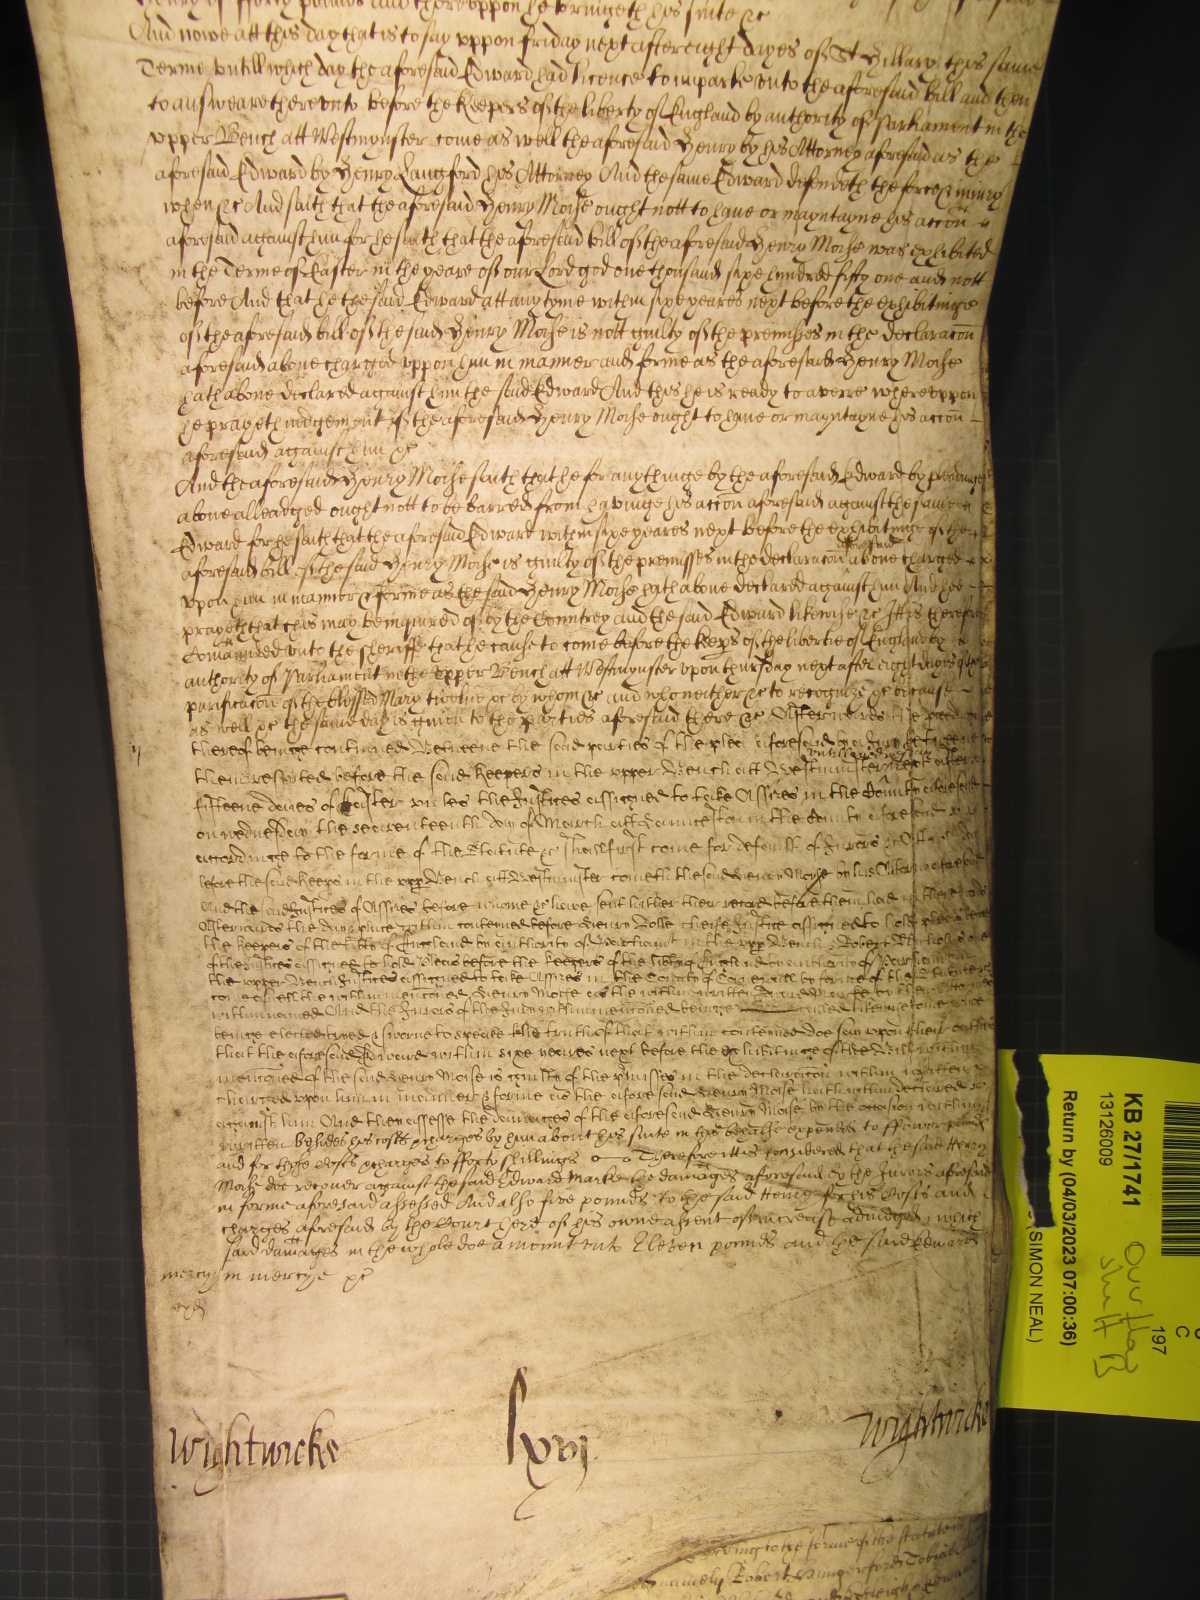 Henry of fforty pounds and thereuppon he bringeth his suite &c
And nowe att this day that is to say uppon friday next after eight dayes of St Hillary this same
Terme untill which day the aforesaid Edward had licence to imparle unto the aforesaid bill and then
to answeare thereunto before the Keepers of the liberty of England by authority of Parliament in the
upper Bench att Westmynster come as well the aforesaid Henry by his Attorney aforesaid as the
aforesaid Edward by Henry Langford his Attorney And the same Edward defendeth the force & iniury
when &c And saith that the aforesaid Henry Moise ought nott to have or mayntayne his accon
aforesaid against him for he saith that the aforesaid bill of the aforesaid Henry Moise was exhibited
in the Terme of Easter in the yeare of our Lord god one thousand sixe hundred fifty one and nott
before And that he the said Edward att any tyme within sixe yeares next before the exhibitinge
of the aforesaid bill of the said Henry Moise is nott guilty of the premisses in the declaracon
aforesaid above charged uppon him in manner and forme as the aforesaid Henry Moise
hath above declared against him the said Edward And this he is ready to averre whereuppon
he prayeth iudgement if the aforesaid Henry Moise ought to have or mayntayne his accon
aforesaid against him &c
And the aforesaid Henry Moise saith that he for any thinge by the aforesaid Edward by pleadinge
above alleadged ought nott to be barred from havinge his accon aforesaid against the said
Edward for he saith that the aforesaid Edward within sixe yeares next before the exhibitinge of the
aforesaid
aforesaid bill of the said Henry Moise is guilty of the premisses in the declaracon above charged
upon him in manner & forme as the said Henry Moise hath above declared against him And hee
prayeth that this may be inquired of by the Countrey and the said Edward likewise &c Itt is therefore
Comaunded unto the sheriffe that he cause to come before the Keeps of the libertie of England by
authority of Parliament in the upper Bench att Westmynster upon thursday next after eight dayes of the
purificacon of the blessed Mary twelve &c by whom &c and who neither &c to recognize &c because
as well &c the same day is given to the parties aforesaid there &c Afterwards the
thereof beinge continued Betweene the said parties of the plea aforesaid by betweene
them respited before the said Keepers in the upper Bench att Westminster
fifteene dayes of Easter unles the Justices assigned to take Assizes in the County aforesaid
on wednesday the seaventeenth day of March att Launceston in the County aforesaid
accordinge to the forme of the Statute &c shall first come for default of Jurors &c Att
before the said Keeps in the upp Bench att Westminster cometh the said Henry Moise by his Attorney aforesaid
And the said Justices of Assizes before whome &c have sent hither their record before them had
Afterwards the day & place within conteyned before Henry Rolle cheife Justice assigned to hold pleas before
the Keepers of the liberty of England by authority of Parliament in the upp Bench & Robert Nicholas one
of the Justices assigned to hold Pleas before the Keepers of the liberty of England by authority of Parliament in
the upper Bench Justices assigned to take Assizes in the County of Cornwall by forme of the Statute
come as well the within mencioned Henry Moise as the within written Edward Marke by their
within named And the Jurors of the Jury within mencioned beinge called likewise come
beinge elected tryed & sworne to speake the truth of that within conteyned doe say upon their oathes
that the aforesaid Edward within sixe yeares next before the exhibitinge of the Bill within
mencioned of the said Henry Moise is guilty of the premisses in the declaracon within written
charged upon him in manner & forme as the aforesaid Henry Moise hath within declared
against him And they assesse the damages of the aforesaid Henry Moise by the occasion within
written besides his costs & charges by him about his suite in this behalfe expended to ffower pounds
and for those costs & charges to fforty shillings Therefore itt is considered that the said Henry
Moise doe recover against the said Edward Marke the damages aforesaid by the Jurors aforesaid
in forme aforesaid assessed And also five pounds to the said Henry for his costs and
charges aforesaid by the Court here of his owne assent of increase adiudged which
said damages in the whole doe amount unto Eleven pounds and the said Edward
mercy in mercye &c
Wightwicke lxvj Wightwicke
accordinge to the forme of the statute
namely Robert Hungerford
KB 27/1741
13126009
Return by (04/03/2023 07:00:36)
(SIMON NEAL)
197
C